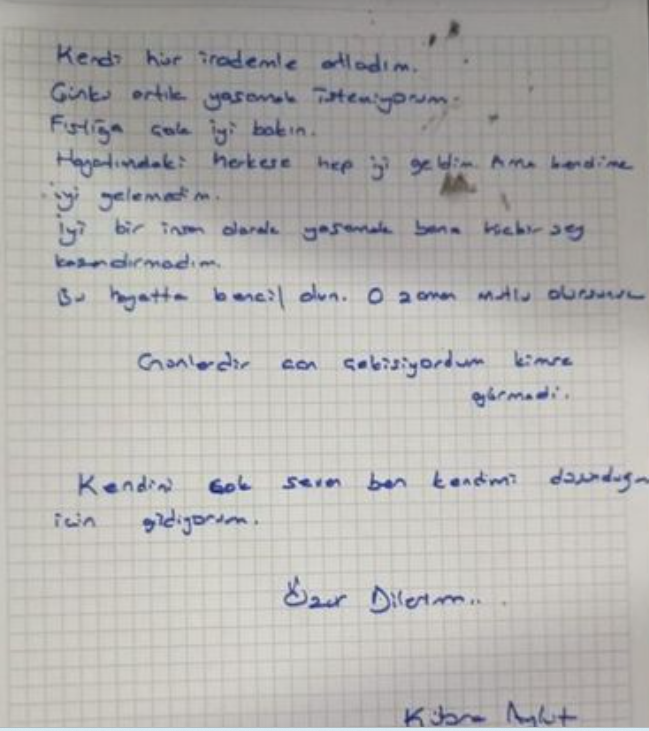 Kendi hür irademle atladım.
Çünkü artık yaşamak istemiyorum.
Fıstığa çok iyi bakın.
Hayatımdaki herkese hep iyi geldim. Ama kendime
iyi gelemedim.
İyi bir insan olarak yaşamak bana hiçbir şey
kazandırmadım.
Bu hayatta bencil olun. O zaman mutlu olursunuz
Günlerdir can çekişiyordum kimse
görmedi.
Kendini çok seven ben kendimi düşündüğüm
için gidiyorum.
Özür Dilerim..
Kübra Aykut